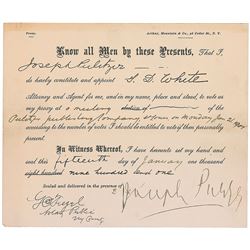 Proxy. Arthur, Mountain & Co., 48 Cedar St., N. Y.
Know all Men by these Presents, That I,
Joseph Pulitzer
do hereby constitute and appoint S. S. White
Attorney and Agent for me, and in my name, place and stead, to vote as
my proxy at a meeting of the
Pulitzer publishing Company on Monday Jan 21
according to the number of votes I should be entitled to vote if then personally
present.
In Witness Whereof, I have hereunto set my hand and
seal this fifteenth day of January one thousand
nine hundred and one
Sealed and delivered in the presence of
Notary Public
Joseph Pulitzer